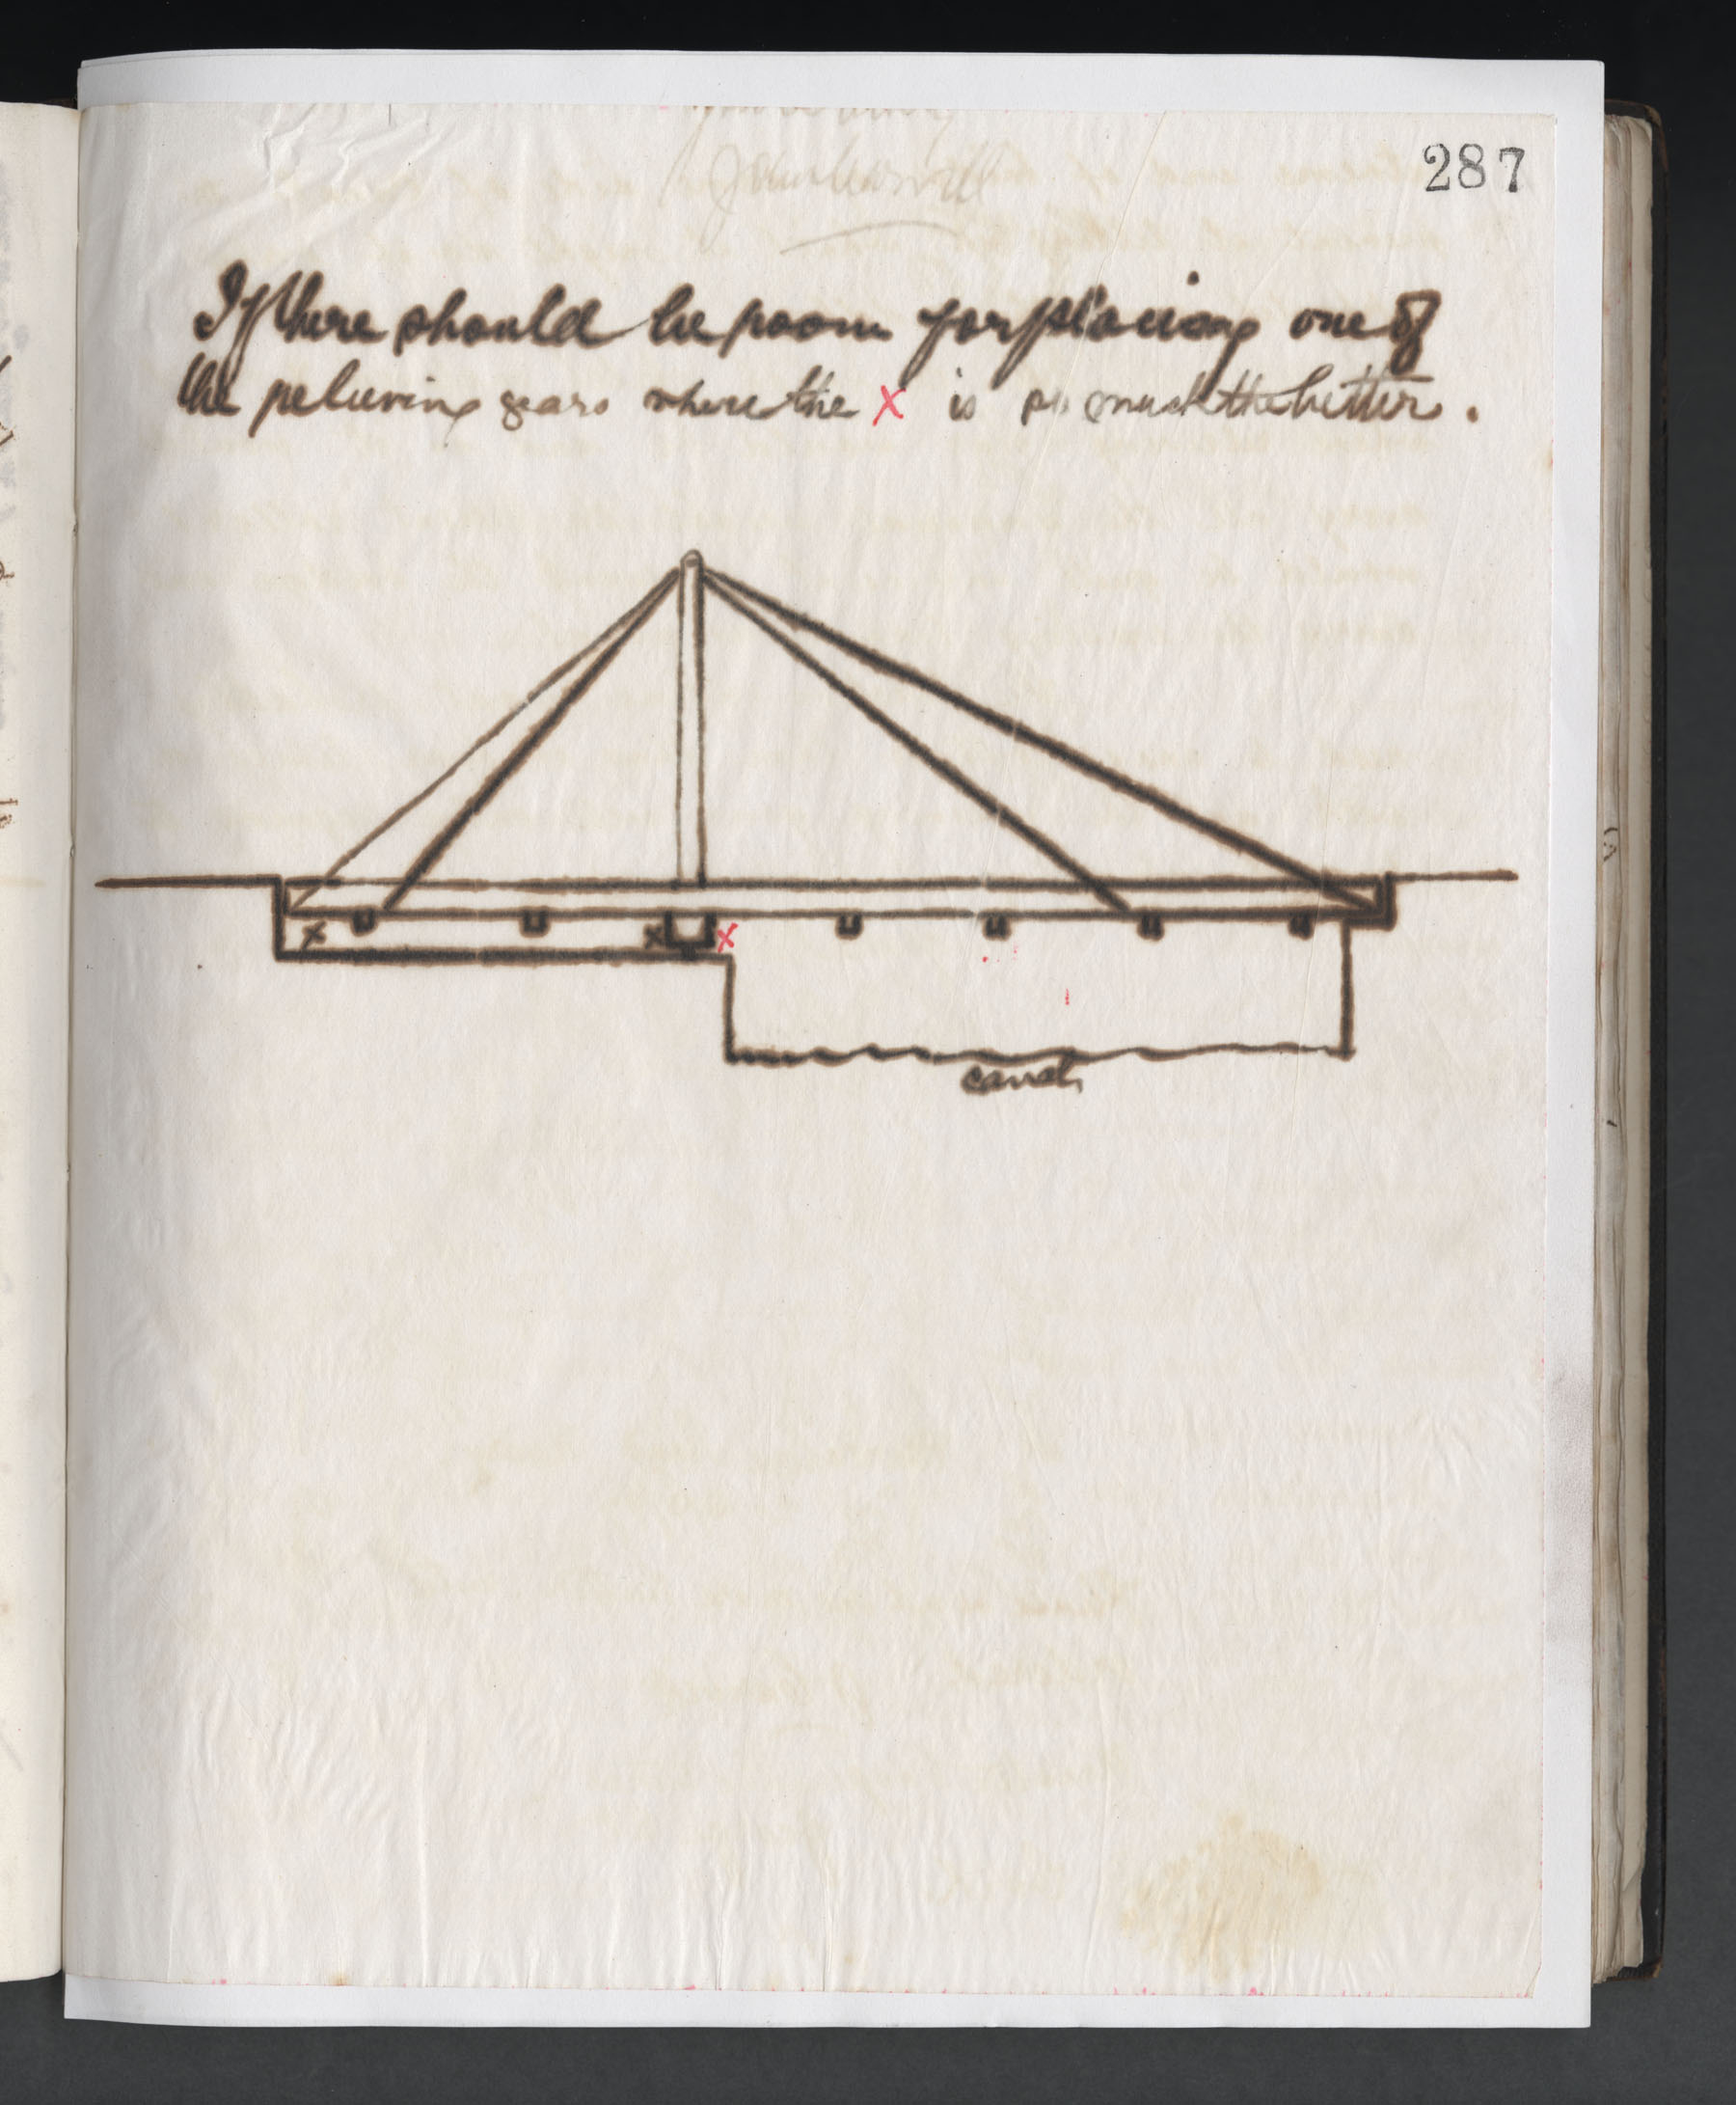 287
If there should be room for placing one of
the relieving gears where the X is so much the better.
x x x
canal